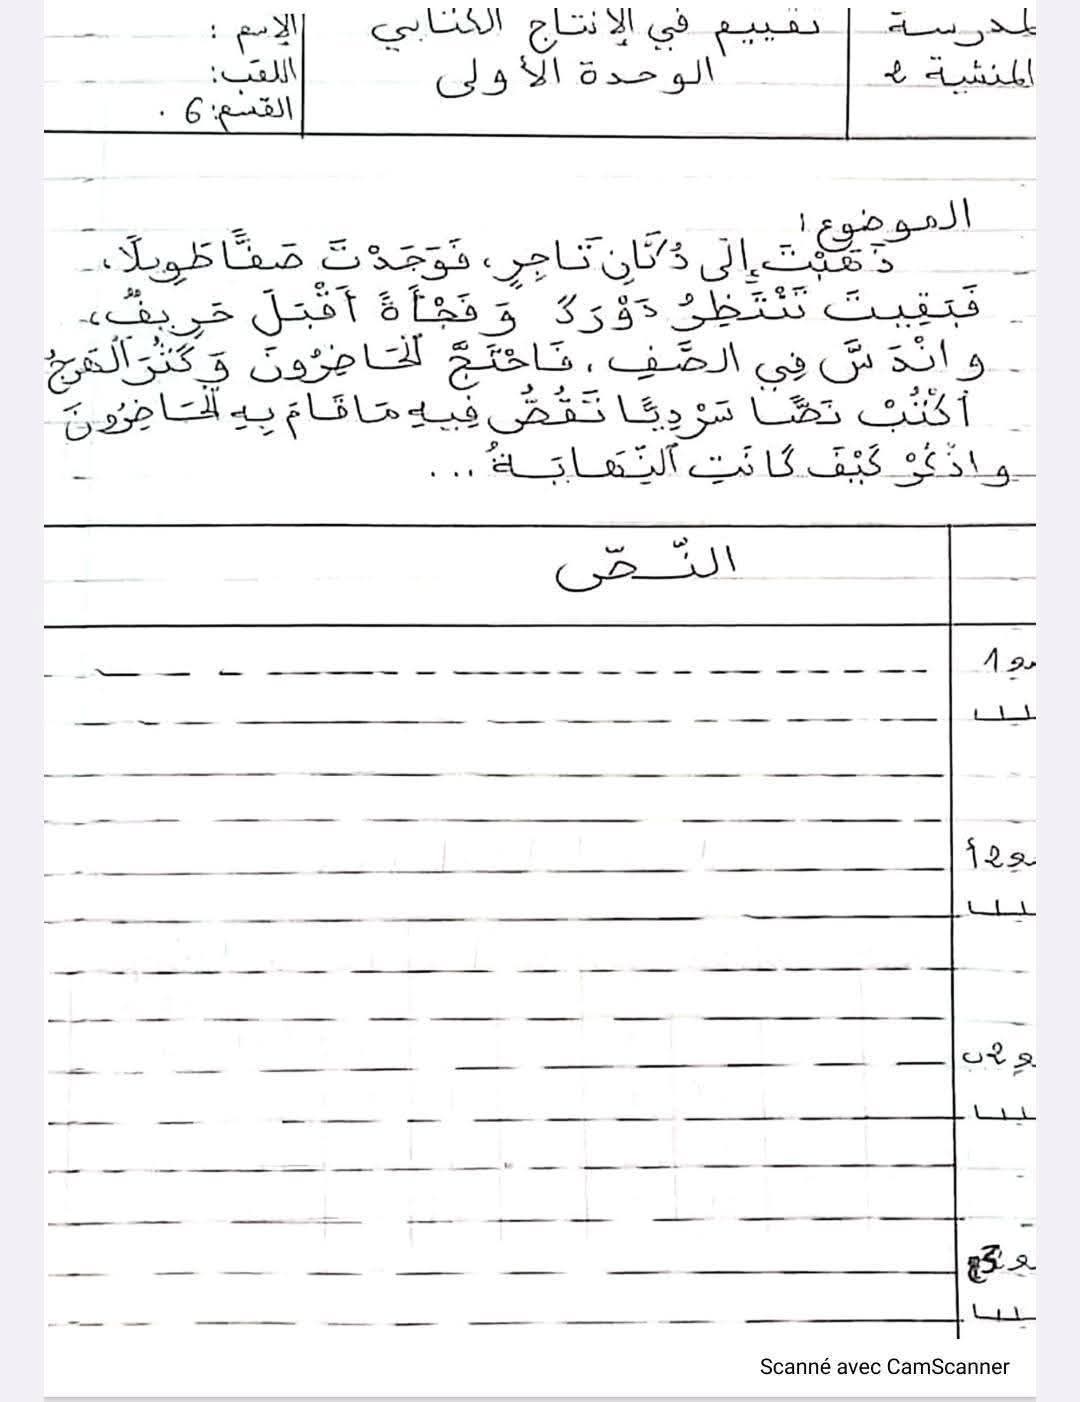 لمدرسة
المنشية 2
تقييم في الإنتاج الكتابي
الوحدة الأولى
الإسم :
اللقب:
القسم: 6 .
الموضوع:
ذَهَبْتَ إِلَى دُكَّانِ تَاجِرٍ، فَوَجَدْتَ صَفًّا طَوِيلًا،
فَبَقِيتَ تَنْتَظِرُ دَوْرَكَ وَ فَجْأَةً أَقْبَلَ حَرِيفٌ،
و انْدَسَّ فِي الصَّفِ، فَاحْتَجَّ الْحَاضِرُونَ وَ كَثُرَ الْهَرْجُ
أُكْتُبْ نَصًّا سَرْدِيًّا تَقُصُّ فِيهِ مَا قَامَ بِهِ الْحَاضِرُونَ
و اذْكُرْ كَيْفَ كَانَتِ النِّهَايَةُ ...
النّصّ
مع 1
مع 2 أ
مع 2 ب
مع 3
Scanné avec CamScanner